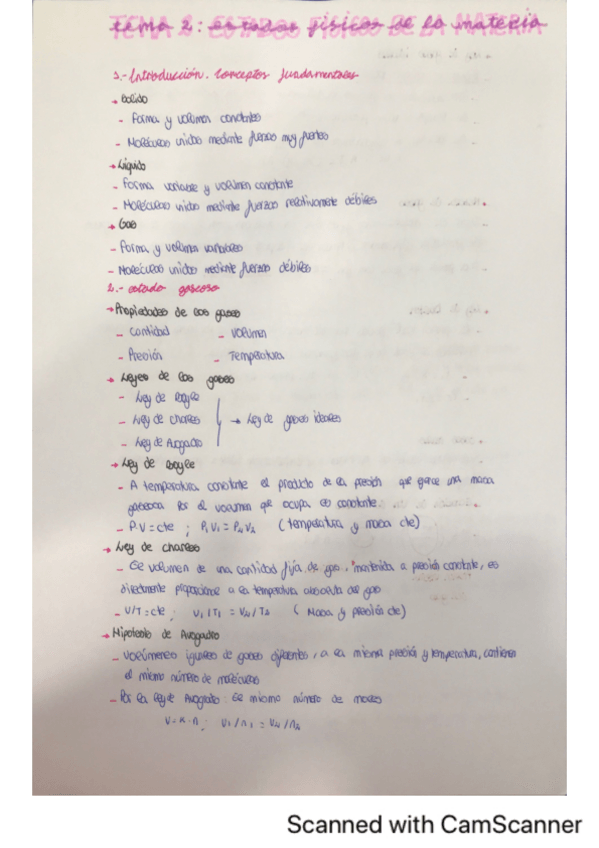 tema 2: estados físicos de la materia
1.- Introducción. Conceptos fundamentales
→ Sólido
- Forma y volumen constantes
- Moléculas unidas mediante fuerzas muy fuertes
→ Líquido
- Forma variable y volumen constante
- Moléculas unidas mediante fuerzas relativamente débiles
→ Gas
- Forma y volumen variables
- Moléculas unidas mediante fuerzas débiles
2.- estado gaseoso
→ Propiedades de los gases
- Cantidad - Volumen
- Presión - Temperatura
→ Leyes de los gases
- Ley de Boyle
- Ley de Charles → Ley de gases ideales
- Ley de Avogadro
→ Ley de Boyle
- A temperatura constante el producto de la presión que ejerce una masa
gaseosa por el volumen que ocupa es constante.
- P·V = cte ; (temperatura y masa cte)
→ Ley de Charles
- El volumen de una cantidad fija de gas, mantenida a presión constante, es
directamente proporcional a la temperatura absoluta del gas
- V/T = cte ; (Masa y presión cte)
→ Hipótesis de Avogadro
- Volúmenes iguales de gases diferentes, a la misma presión y temperatura, contienen
el mismo número de moléculas
- Por la ley de Avogadro: el mismo número de moles
V = k·n ;
Scanned with CamScanner